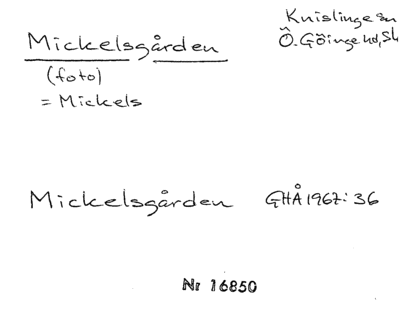 Mickelsgården
Knislinge sn
Ö. Göinge hd, Sk
(foto)
= Mickels
Mickelsgården GHÅ 1967: 36
Nr 16850